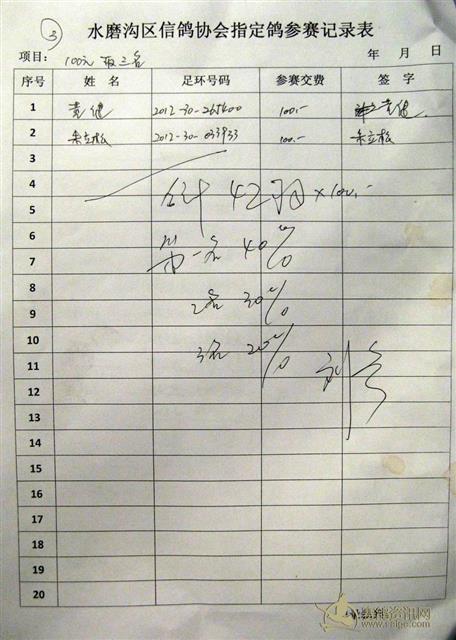 ③
水磨沟区信鸽协会指定鸽参赛记录表
项目： 100元 取三名 年 月 日
序号 姓 名 足环号码 参赛交费 签 字
1 袁健 2012-30-265400 100.- 袁健
2 朱立松 2012-30-033933 100.- 朱立松
3
4
合计 42羽×100.-
5
6
第一名 40%
7
8
2名 30%
9
10
3名 20%
11
12
13
14
15
16
17
18
19
20
www.saige.com